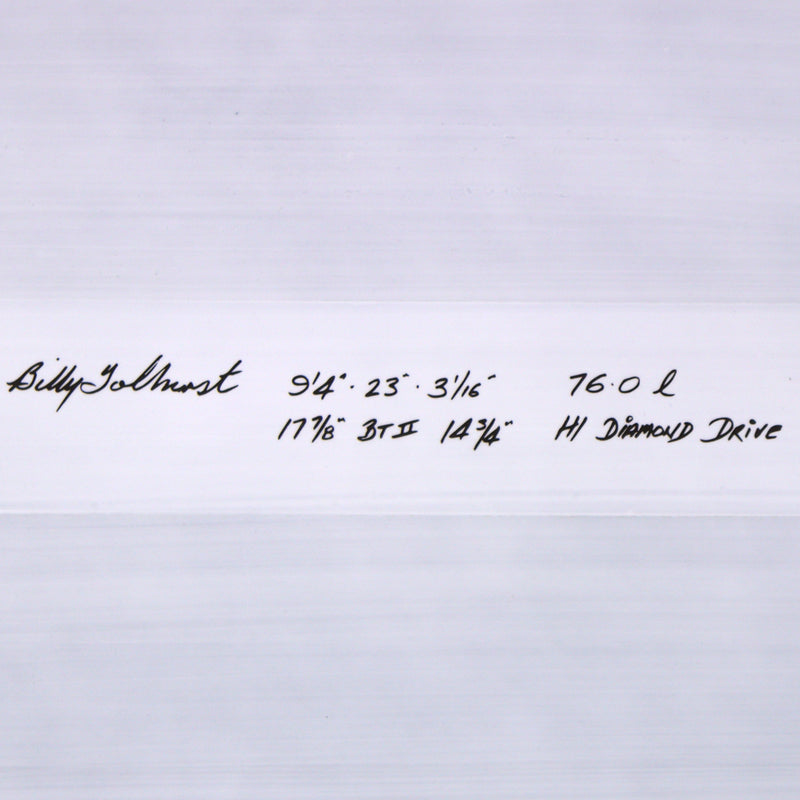 Billy Tolhurst 9'4" · 23" · 3 1/16" 76.0 l
17 7/8" BT II 14 3/4" HI DIAMOND DRIVE